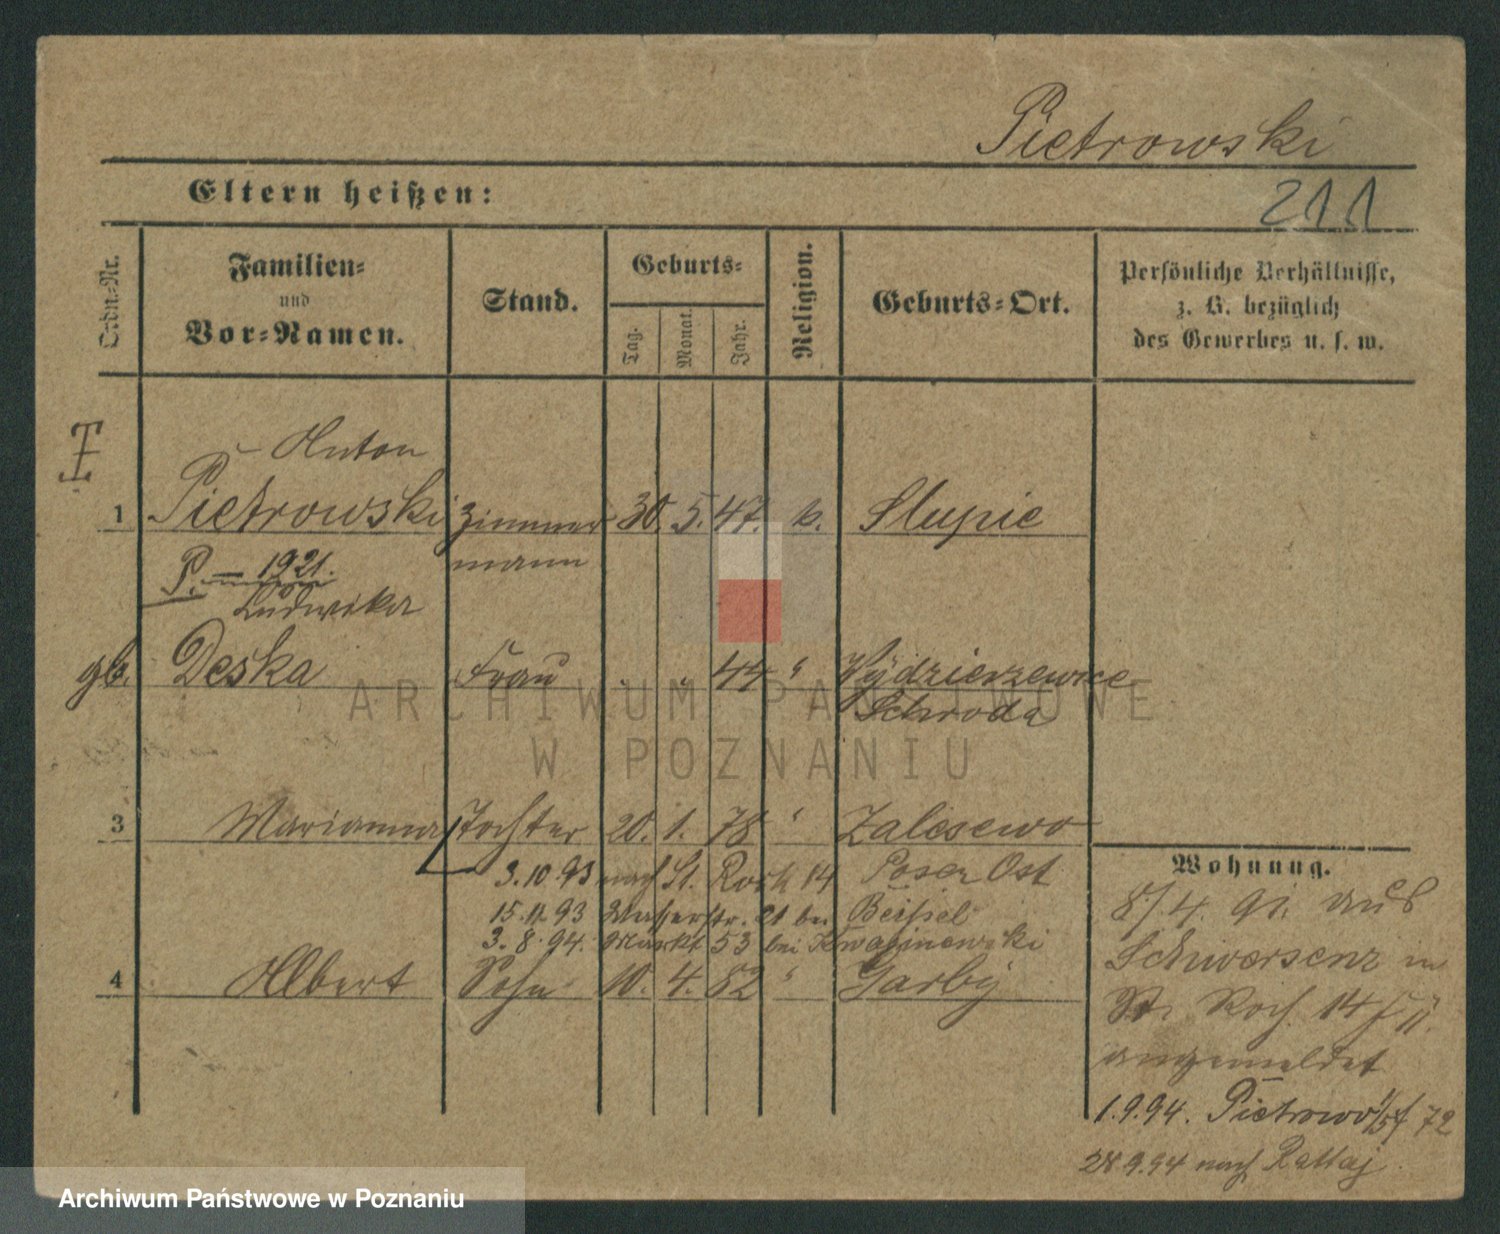 Pietrowski
Eltern heißen:
211
Ordn.-Nr.
Familien-
und
Vor-Namen.
Stand.
Geburts-
Tag.
Monat.
Jahr.
Religion.
Geburts-Ort.
Persönliche Verhältnisse,
z. B. bezüglich
des Gewerbes u. s. w.
Anton
1 Pietrowski Zimmer 30. 5. 47. k. Slupie
mann
P. — 1921.
Ludwika
gb. Deska Frau 44 " Wydzierzewice
Schroda
ARCHIWUM PAŃSTWOWE
W POZNANIU
3 Marianna Tochter 20. 1. 78 " Zalesewo
3.10.93 nach St. Roch 14 Posen Ost
15.11.93 Wasserstr. 21 bei Beisiel
3.8.94. Markt 53 bei
4 Albert Sohn 10. 4. 82 " Garby
Wohnung.
8/4. 91. aus
Schwersenz in
St. Roch 14
angemeldet
1.9.94. Pietrowo 72
28.9.94 nach Rattaj
Archiwum Państwowe w Poznaniu